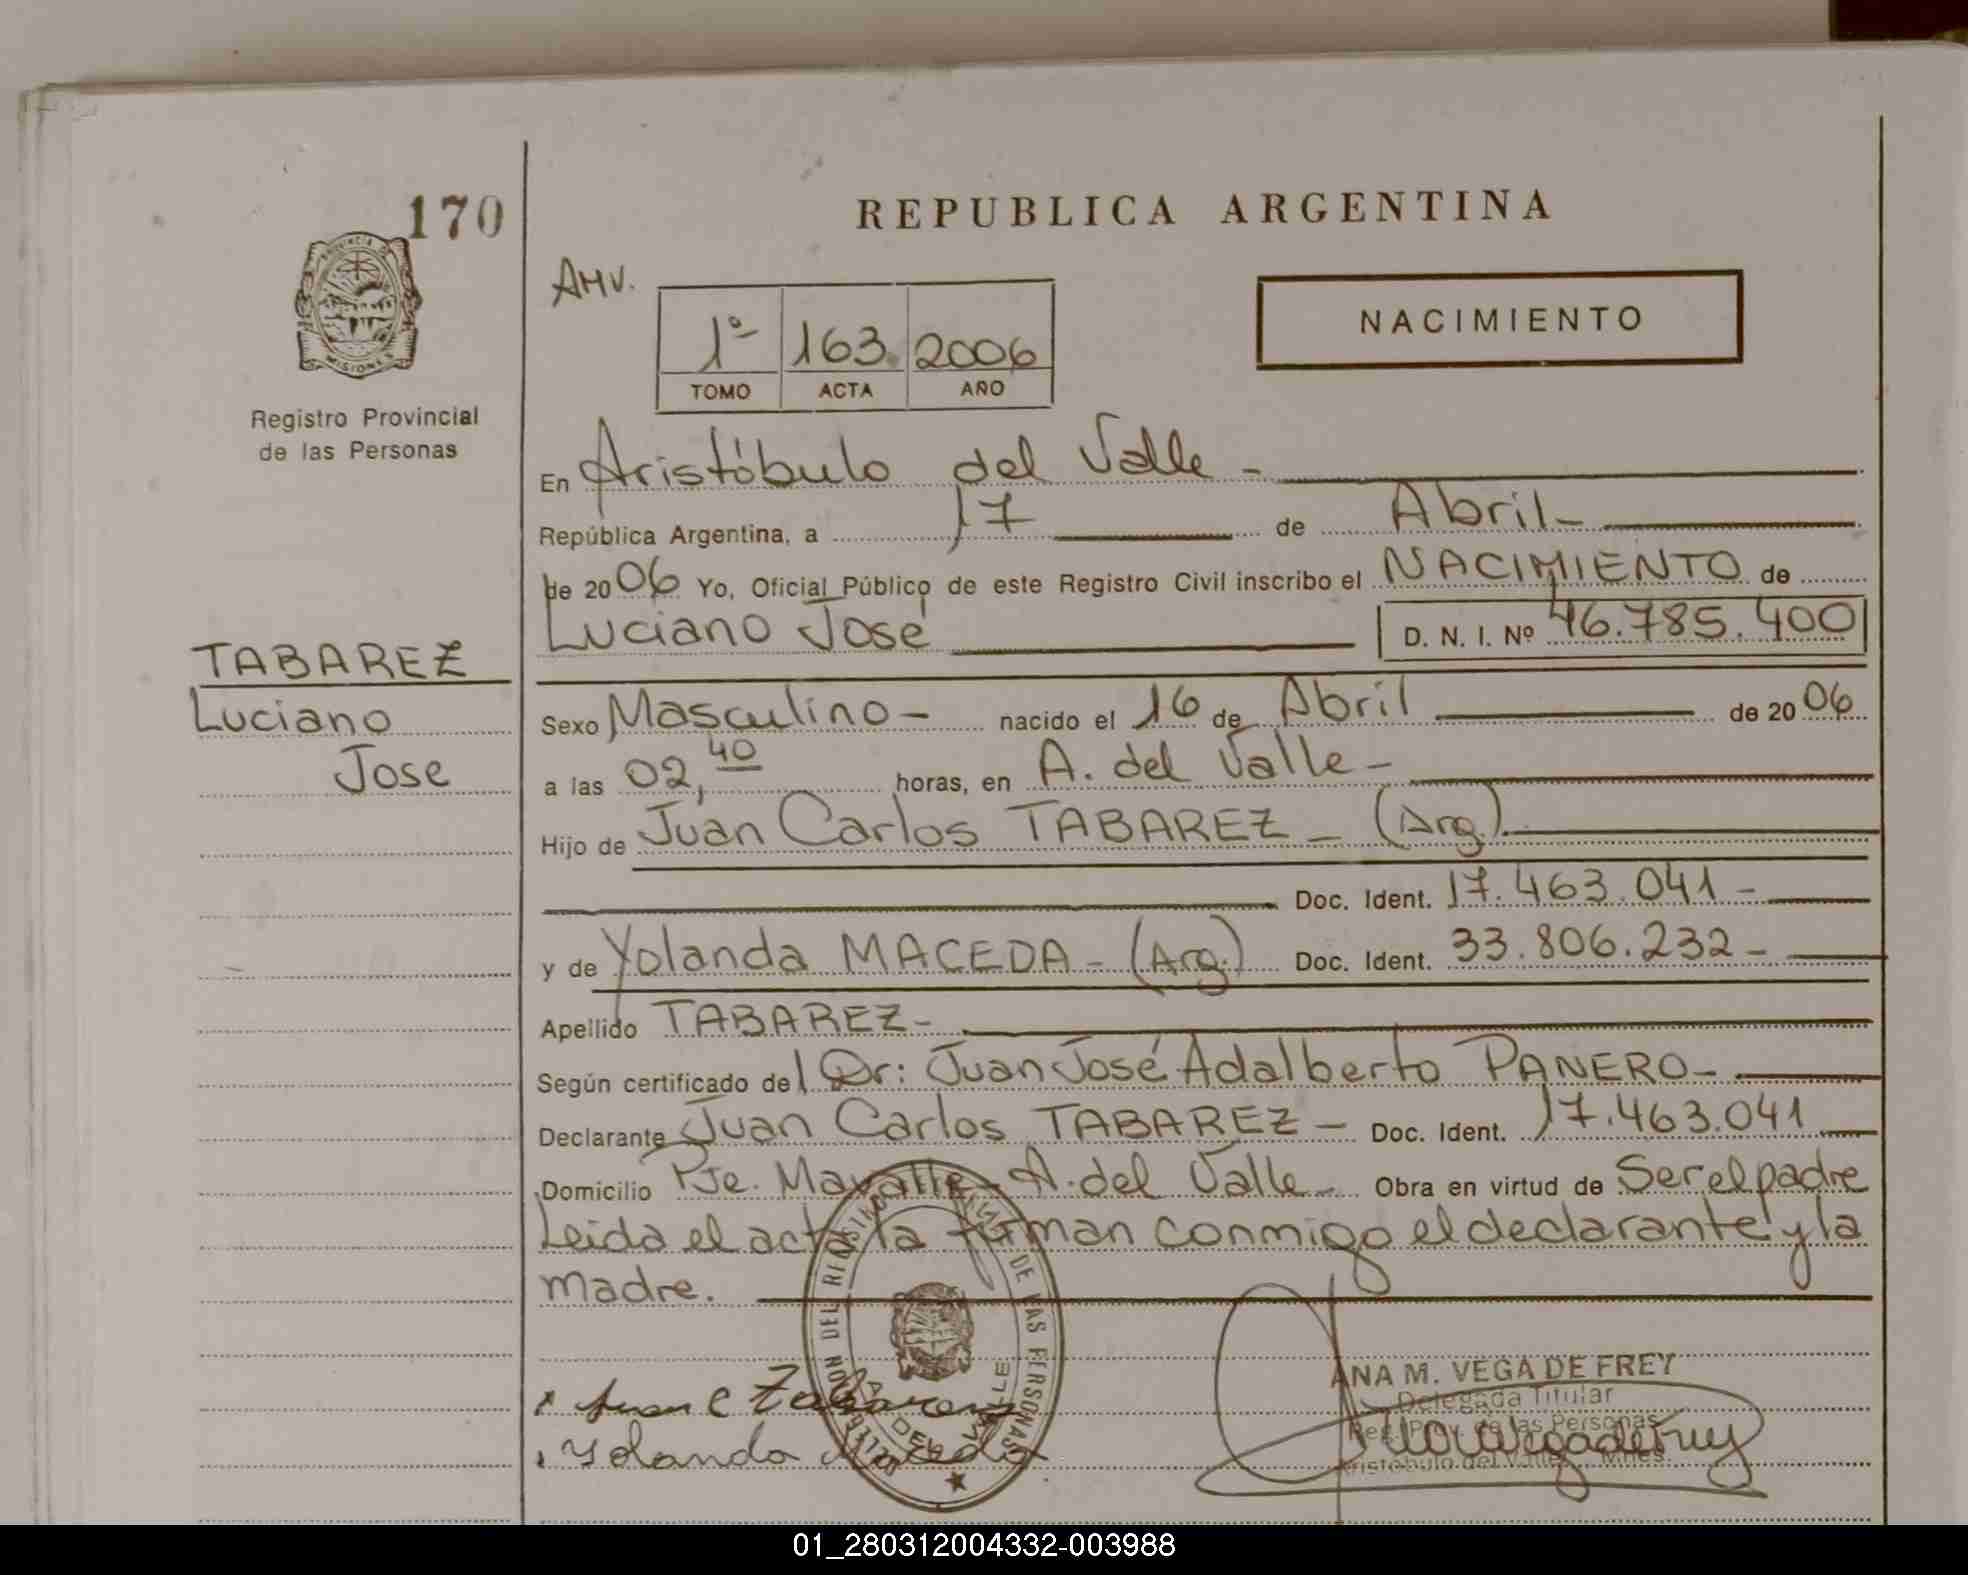 170
PROVINCIA DE
MISIONES
Registro Provincial
de las Personas
TABAREZ
Luciano
Jose
REPUBLICA ARGENTINA
AHV.
1º 163 2006
TOMO ACTA AÑO
NACIMIENTO
En Aristóbulo del Valle -
República Argentina, a 17 de Abril -
de 2006 Yo, Oficial Público de este Registro Civil inscribo el NACIMIENTO de
Luciano José D. N. I. Nº 46.785.400
Sexo Masculino - nacido el 16 de Abril de 2006
a las 02,40 horas, en A. del Valle -
Hijo de Juan Carlos TABAREZ - (Arg.)
Doc. Ident. 17.463.041 -
y de Yolanda MACEDA - (Arg.) Doc. Ident. 33.806.232 -
Apellido TABAREZ -
Según certificado del Dr: Juan José Adalberto PANERO -
Declarante Juan Carlos TABAREZ - Doc. Ident. 17.463.041
Domicilio Pje. Mavalle - A. del Valle - Obra en virtud de Ser el padre
Leida el acta la firman conmigo el declarante y la
madre.
Juan C Tabarez
Yolanda Maceda
DE LAS PERSONAS
A. DEL VALLE
ANA M. VEGA DE FREY
Delegada Titular
Reg. Prov. de las Personas
Aristóbulo del Valle - Mnes.
01_280312004332-003988